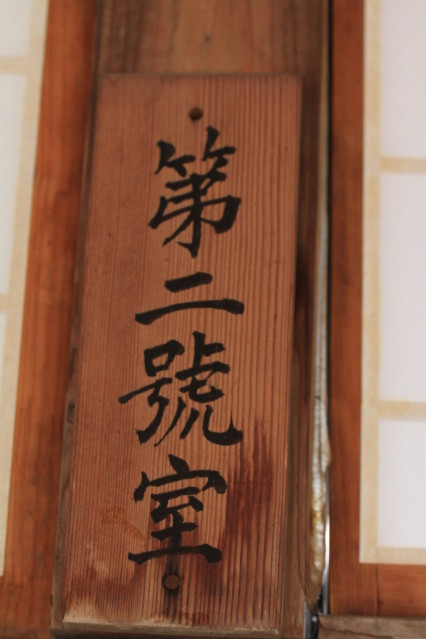 第二號室